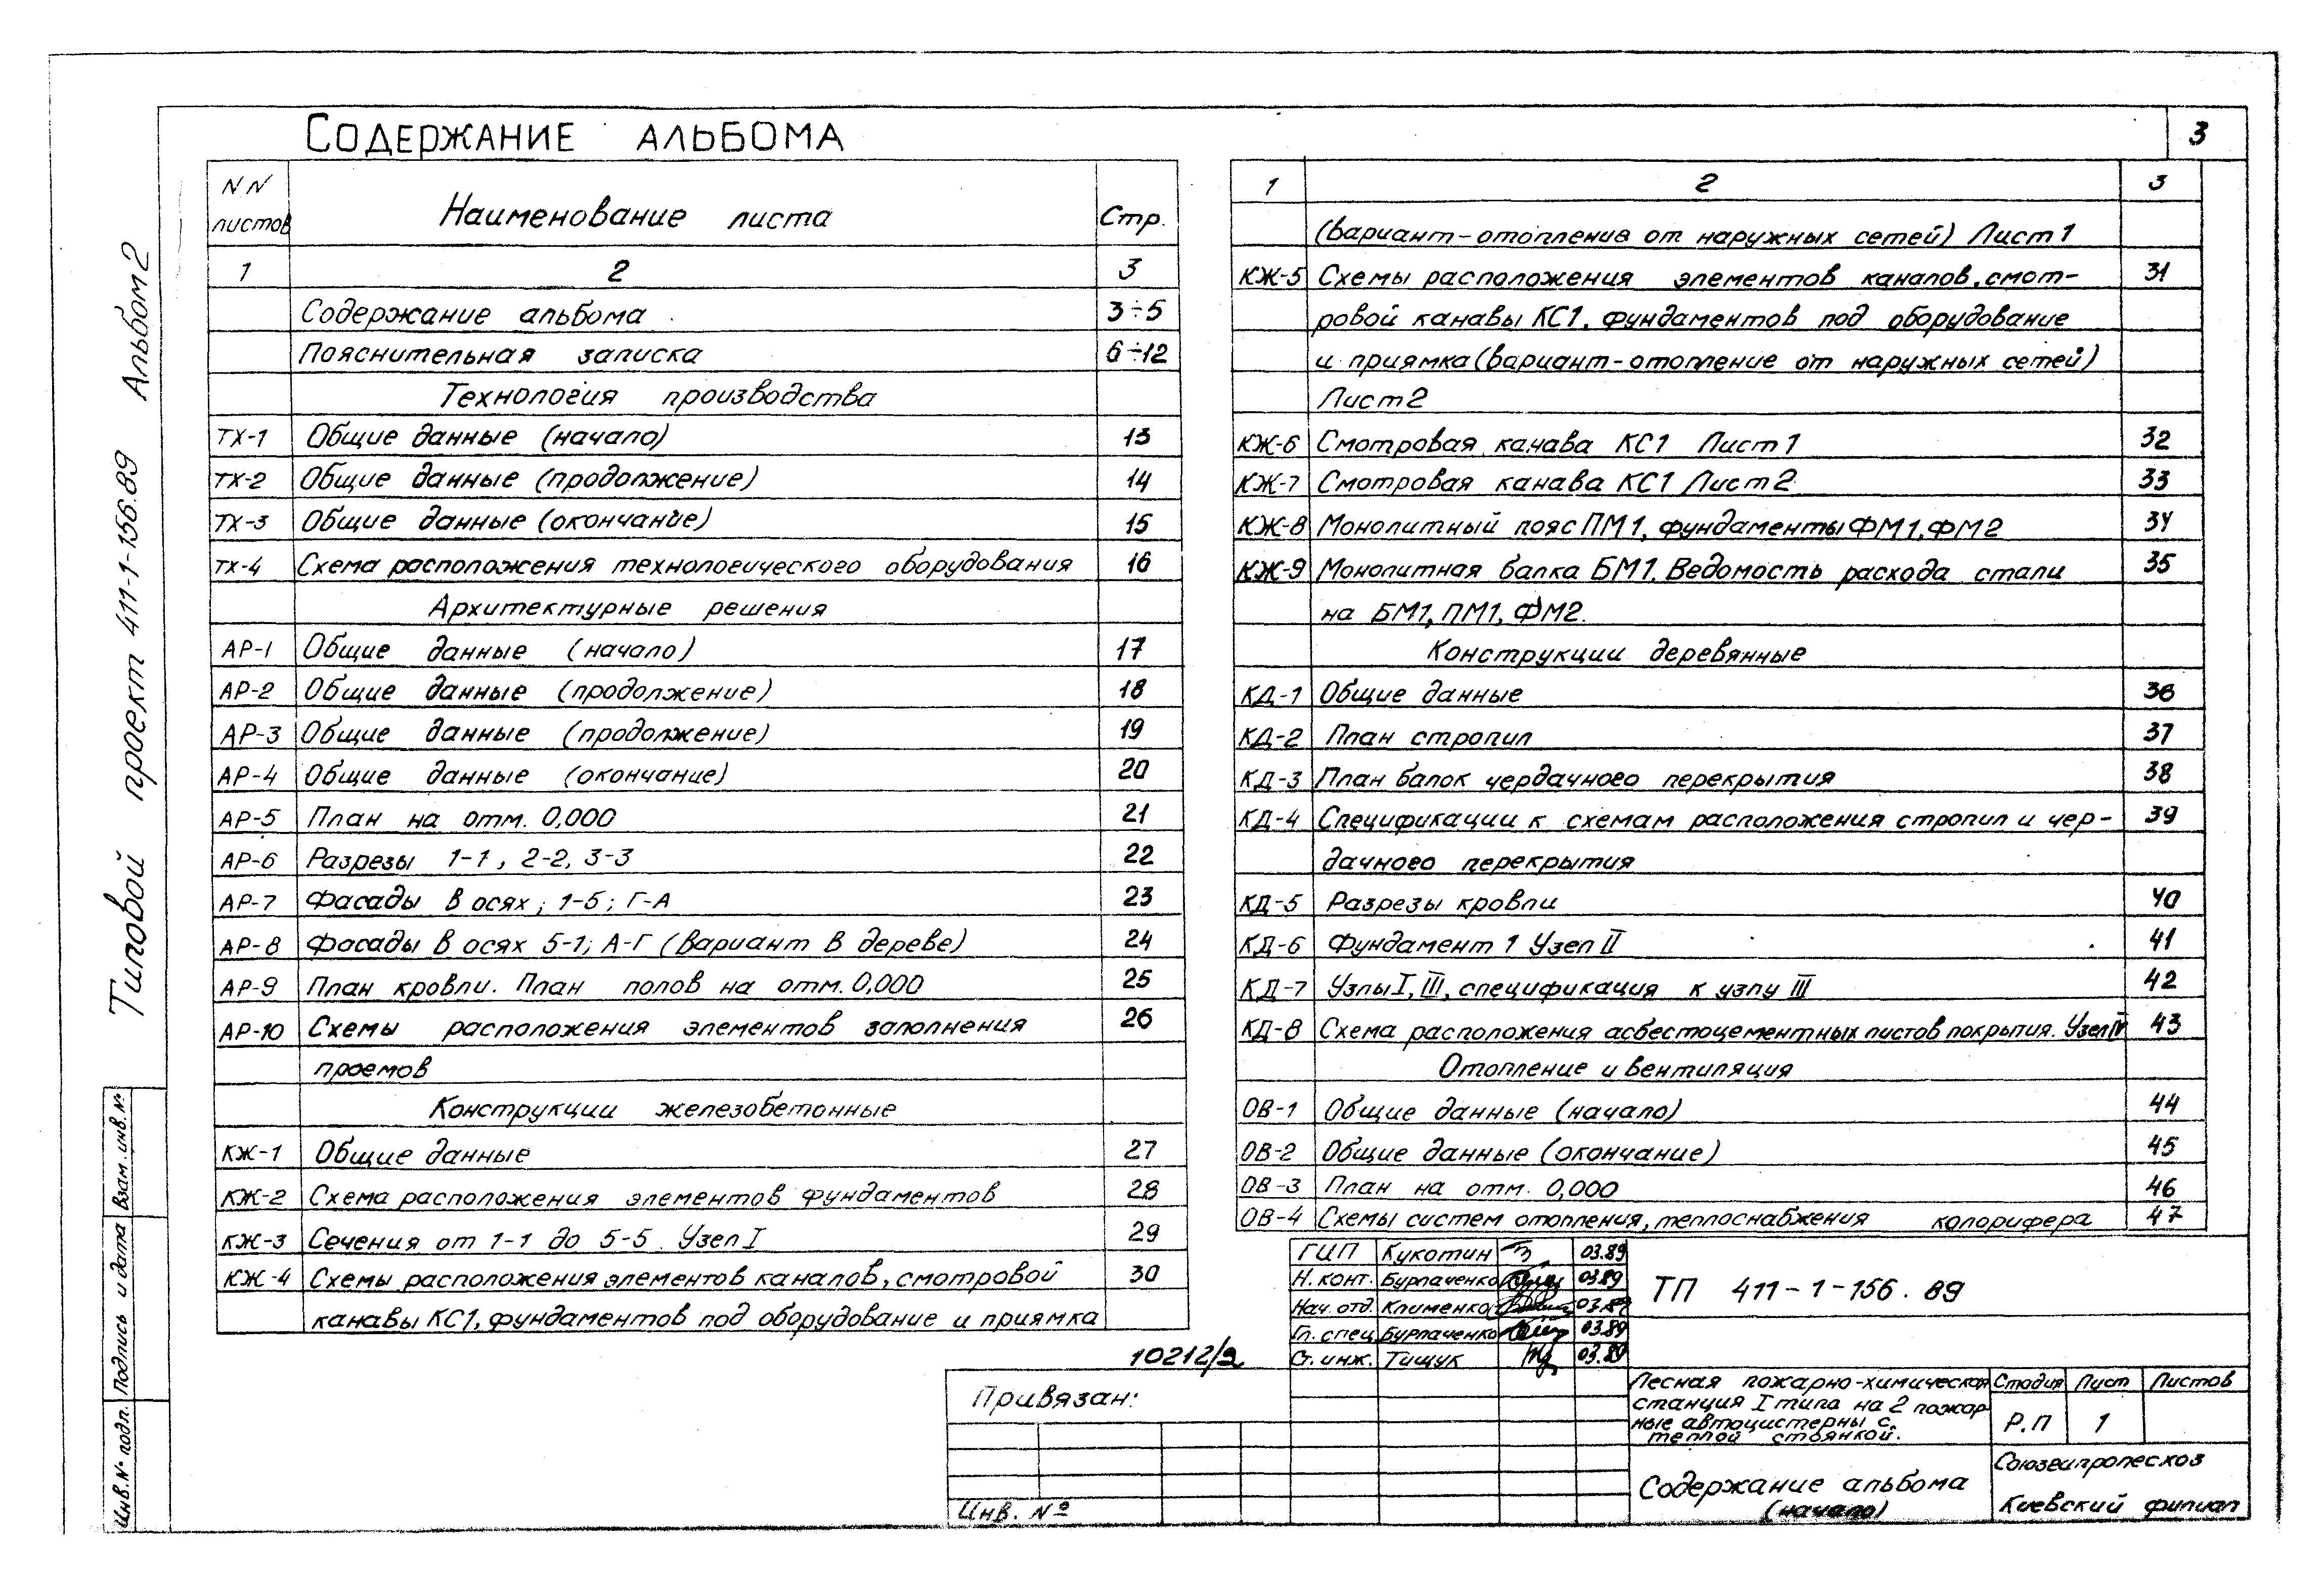 3
Содержание альбома
NN листов | Наименование листа | Стр.
1 | 2 | 3
Содержание альбома | 3÷5
Пояснительная записка | 6÷12
Технология производства
ТХ-1 | Общие данные (начало) | 13
ТХ-2 | Общие данные (продолжение) | 14
ТХ-3 | Общие данные (окончание) | 15
ТХ-4 | Схема расположения технологического оборудования | 16
Архитектурные решения
АР-1 | Общие данные (начало) | 17
АР-2 | Общие данные (продолжение) | 18
АР-3 | Общие данные (продолжение) | 19
АР-4 | Общие данные (окончание) | 20
АР-5 | План на отм. 0,000 | 21
АР-6 | Разрезы 1-1, 2-2, 3-3 | 22
АР-7 | Фасады в осях; 1-5; Г-А | 23
АР-8 | Фасады в осях 5-1; А-Г (вариант в дереве) | 24
АР-9 | План кровли. План полов на отм. 0,000 | 25
АР-10 | Схемы расположения элементов заполнения | 26
проемов
Конструкции железобетонные
КЖ-1 | Общие данные | 27
КЖ-2 | Схема расположения элементов фундаментов | 28
КЖ-3 | Сечения от 1-1 до 5-5. Узел I | 29
КЖ-4 | Схемы расположения элементов каналов, смотровой | 30
канавы КС1, фундаментов под оборудование и приямка
1 | 2 | 3
(вариант-отопления от наружных сетей) Лист 1
КЖ-5 | Схемы расположения элементов каналов, смот- | 31
ровой канавы КС1, фундаментов под оборудование
и приямка (вариант-отопление от наружных сетей)
Лист 2
КЖ-6 | Смотровая канава КС1 Лист 1 | 32
КЖ-7 | Смотровая канава КС1 Лист 2 | 33
КЖ-8 | Монолитный пояс ПМ1, фундаменты ФМ1, ФМ2 | 34
КЖ-9 | Монолитная балка БМ1. Ведомость расхода стали | 35
на БМ1, ПМ1, ФМ2.
Конструкции деревянные
КД-1 | Общие данные | 36
КД-2 | План стропил | 37
КД-3 | План балок чердачного перекрытия | 38
КД-4 | Спецификации к схемам расположения стропил и чер- | 39
дачного перекрытия
КД-5 | Разрезы кровли | 40
КД-6 | Фундамент 1 Узел II | 41
КД-7 | Узлы I, III, спецификация к узлу III | 42
КД-8 | Схема расположения асбестоцементных листов покрытия. Узел IV | 43
Отопление и вентиляция
ОВ-1 | Общие данные (начало) | 44
ОВ-2 | Общие данные (окончание) | 45
ОВ-3 | План на отм. 0,000 | 46
ОВ-4 | Схемы систем отопления, теплоснабжения калорифера | 47
10212/2
ГИП | Кукотин | 03.89
Н. конт. | Бурлаченко | 03.89
Нач. отд. | Клименко | 03.89
Гл. спец. | Бурлаченко | 03.89
Ст. инж. | Тищук | 03.89
ТП 411-1-156.89
Лесная пожарно-химическая
станция I типа на 2 пожар
ные автоцистерны с
теплой стоянкой.
Стадия | Лист | Листов
Р.П | 1
Содержание альбома
(начало)
Союзгипролесхоз
Киевский филиал
Привязан:
Инв. №
Типовой проект 411-1-156.89 Альбом 2
Инв. № подл. | Подпись и дата | Взам. инв. №